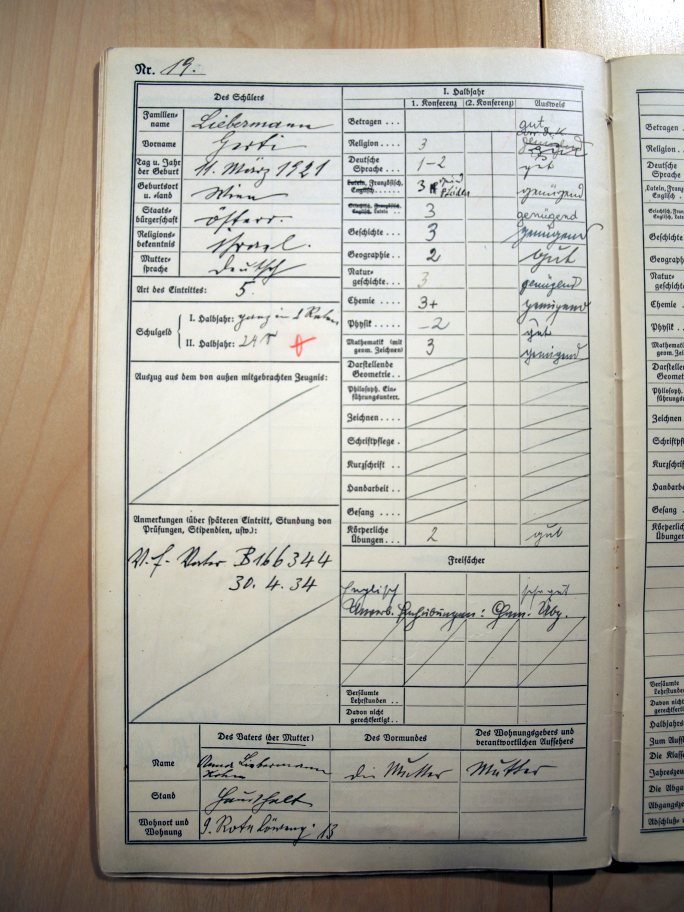 Nr. 19.
Des Schülers
Familien-
name Liebermann
Vorname Gerti
Tag u. Jahr
der Geburt 11. März 1921
Geburtsort
u. -land Wien
Staats-
bürgerschaft österr.
Religions-
bekenntnis israel.
Mutter-
sprache deutsch
Art des Eintrittes: 5
Schulgeld
I. Halbjahr: ganz in 2 Raten
II. Halbjahr: 24
Auszug aus dem von außen mitgebrachten Zeugnis:
Anmerkungen (über späteren Eintritt, Stundung von
Prüfungen, Stipendien, usw.):
V. f. Vater B 166344
30. 4. 34
I. Halbjahr
1. Konferenz (2. Konferenz) Ausweis
Betragen . . . gut
Religion . . . 3
Deutsche
Sprache . . . 1-2 gut
Latein, Französisch,
Englisch . . . 3 genügend
Griechisch, Französisch,
Englisch, Latein . . 3 genügend
Geschichte . . 3 genügend
Geographie . . 2 gut
Natur-
geschichte . . . 3 genügend
Chemie . . . 3+ genügend
Physik . . . . . -2 gut
Mathematik (mit
geom. Zeichnen) 3 genügend
Darstellende
Geometrie . .
Philosoph. Ein-
führungsunterr.
Zeichnen . . . .
Schriftpflege .
Kurzschrift . .
Handarbeit . .
Gesang . . . .
Körperliche
Übungen . . . . 2 gut
Freifächer
Englisch sehr gut
Unverb. Chem. Übg.
Versäumte
Lehrstunden . .
Davon nicht
gerechtfertigt . .
Des Vaters (der Mutter) Des Vormundes Des Wohnungsgebers und
verantwortlichen Aufsehers
Name Liebermann die Mutter Mutter
Stand Haushalt
Wohnort und
Wohnung 9. Rote Löweng. 13
Betragen . .
Religion . . .
Deutsche
Sprache . . .
Latein, Französisch,
Englisch . . .
Griechisch, Französ.
Englisch, Latein
Geschichte
Geographie
Natur-
geschichte . .
Chemie . .
Physik . . .
Mathematik
geom. Zeich
Darstellende
Geometrie
Philosoph.
führungsunt
Zeichnen . .
Schriftpfl
Kurzschrift
Handarbeit
Gesang . .
Körperlich
Übungen
Versäumte
Lehrstunden
Davon nicht
gerechtfertigt
Halbjahrs
Zum Aufst
Die Klasse
Jahreszeu
Die Abga
Abgangsze
Abschluß- u